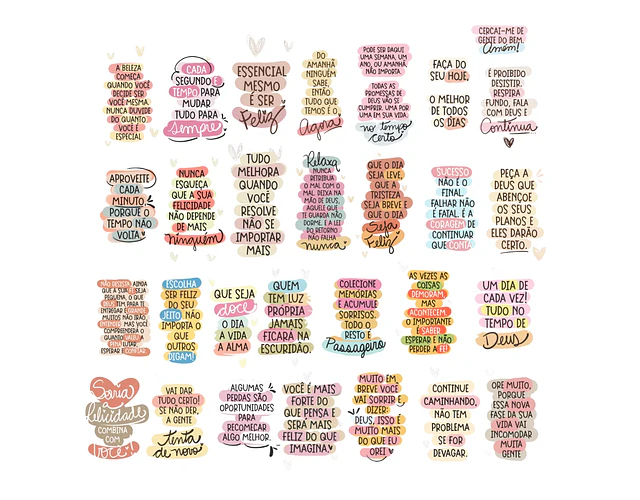 A BELEZA
COMEÇA
QUANDO VOCÊ
DECIDE SER
VOCÊ MESMA.
NUNCA DUVIDE
DO QUANTO
VOCÊ É
ESPECIAL
CADA
SEGUNDO É
TEMPO PARA
MUDAR
TUDO PARA
Sempre
ESSENCIAL
MESMO
É SER
Feliz
DO
AMANHÃ
NINGUÉM
SABE,
ENTÃO
TUDO QUE
TEMOS É O
Agora
PODE SER DAQUI
UMA SEMANA, UM
ANO, OU AMANHÃ
NÃO IMPORTA.
TODAS AS
PROMESSAS DE
DEUS VÃO SE
CUMPRIR. UMA POR
UMA EM SUA VIDA.
no tempo
certo
FAÇA DO
SEU HOJE,
O MELHOR
DE TODOS
OS DIAS
CERCAI-ME DE
GENTE DO BEM.
Amém!
É PROIBIDO
DESISTIR.
RESPIRA
FUNDO, FALA
COM DEUS E
Continua
APROVEITE
CADA
MINUTO,
PORQUE O
TEMPO NÃO
VOLTA
NUNCA
ESQUEÇA
QUE A SUA
FELICIDADE
NÃO DEPENDE
DE MAIS
ninguém
TUDO
MELHORA
QUANDO
VOCÊ
RESOLVE
NÃO SE
IMPORTAR
MAIS
Relaxa
NUNCA
RETRIBUA
O MAL COM O
MAL. DEIXA NA
MÃO DE DEUS,
AQUELE QUE
TE GUARDA NÃO
DORME. E A LEI
DO RETORNO
NÃO FALHA
nunca
QUE O DIA
SEJA LEVE,
QUE A
TRISTEZA
SEJA BREVE E
QUE O DIA
Seja
Feliz
SUCESSO
NÃO É O
FINAL,
FALHAR NÃO
É FATAL. É A
CORAGEM DE
CONTINUAR
QUE CONTA
PEÇA A
DEUS QUE
ABENÇOE
OS SEUS
PLANOS E
ELES DARÃO
CERTO.
NÃO DESISTA, AINDA
QUE A SUA FÉ SEJA
PEQUENA, O QUE
DEUS TEM PARA TE
ENTREGAR É GRANDE.
MUITOS NÃO IRÃO
ENTENDER, MAS VOCÊ
COMPREENDERÁ O
ESPERAR E CONFIAR.
ESCOLHA
SER FELIZ
DO SEU
JEITO NÃO
IMPORTA O
QUE
OUTROS
DIGAM!
QUE SEJA
doce
O DIA
A VIDA
A ALMA
QUEM
TEM LUZ
PRÓPRIA
JAMAIS
FICARÁ NA
ESCURIDÃO.
COLECIONE
MEMÓRIAS
E ACUMULE
SORRISOS.
TODO O
RESTO É
Passageiro
AS VEZES AS
COISAS
DEMORAM,
MAS
ACONTECEM.
O IMPORTANTE
É SABER
ESPERAR E NÃO
PERDER A FÉ!
UM DIA DE
CADA VEZ!
TUDO NO
TEMPO DE
Deus
Seria
a
felicidade
COMBINA
COM
você!
VAI DAR
TUDO CERTO!
SE NÃO DER,
A GENTE
tenta
de novo
ALGUMAS
PERDAS SÃO
OPORTUNIDADES
PARA
RECOMEÇAR
ALGO MELHOR.
VOCÊ É MAIS
FORTE DO
QUE PENSA E
SERÁ MAIS
FELIZ DO QUE
IMAGINA
MUITO EM
BREVE VOCÊ
VAI SORRIR E
DIZER:
DEUS, ISSO É
MUITO MAIS
DO QUE EU
OREI
CONTINUE
CAMINHANDO,
NÃO TEM
PROBLEMA
SE FOR
DEVAGAR.
ORE MUITO,
PORQUE
ESSA NOVA
FASE DA SUA
VIDA VAI
INCOMODAR
MUITA
GENTE